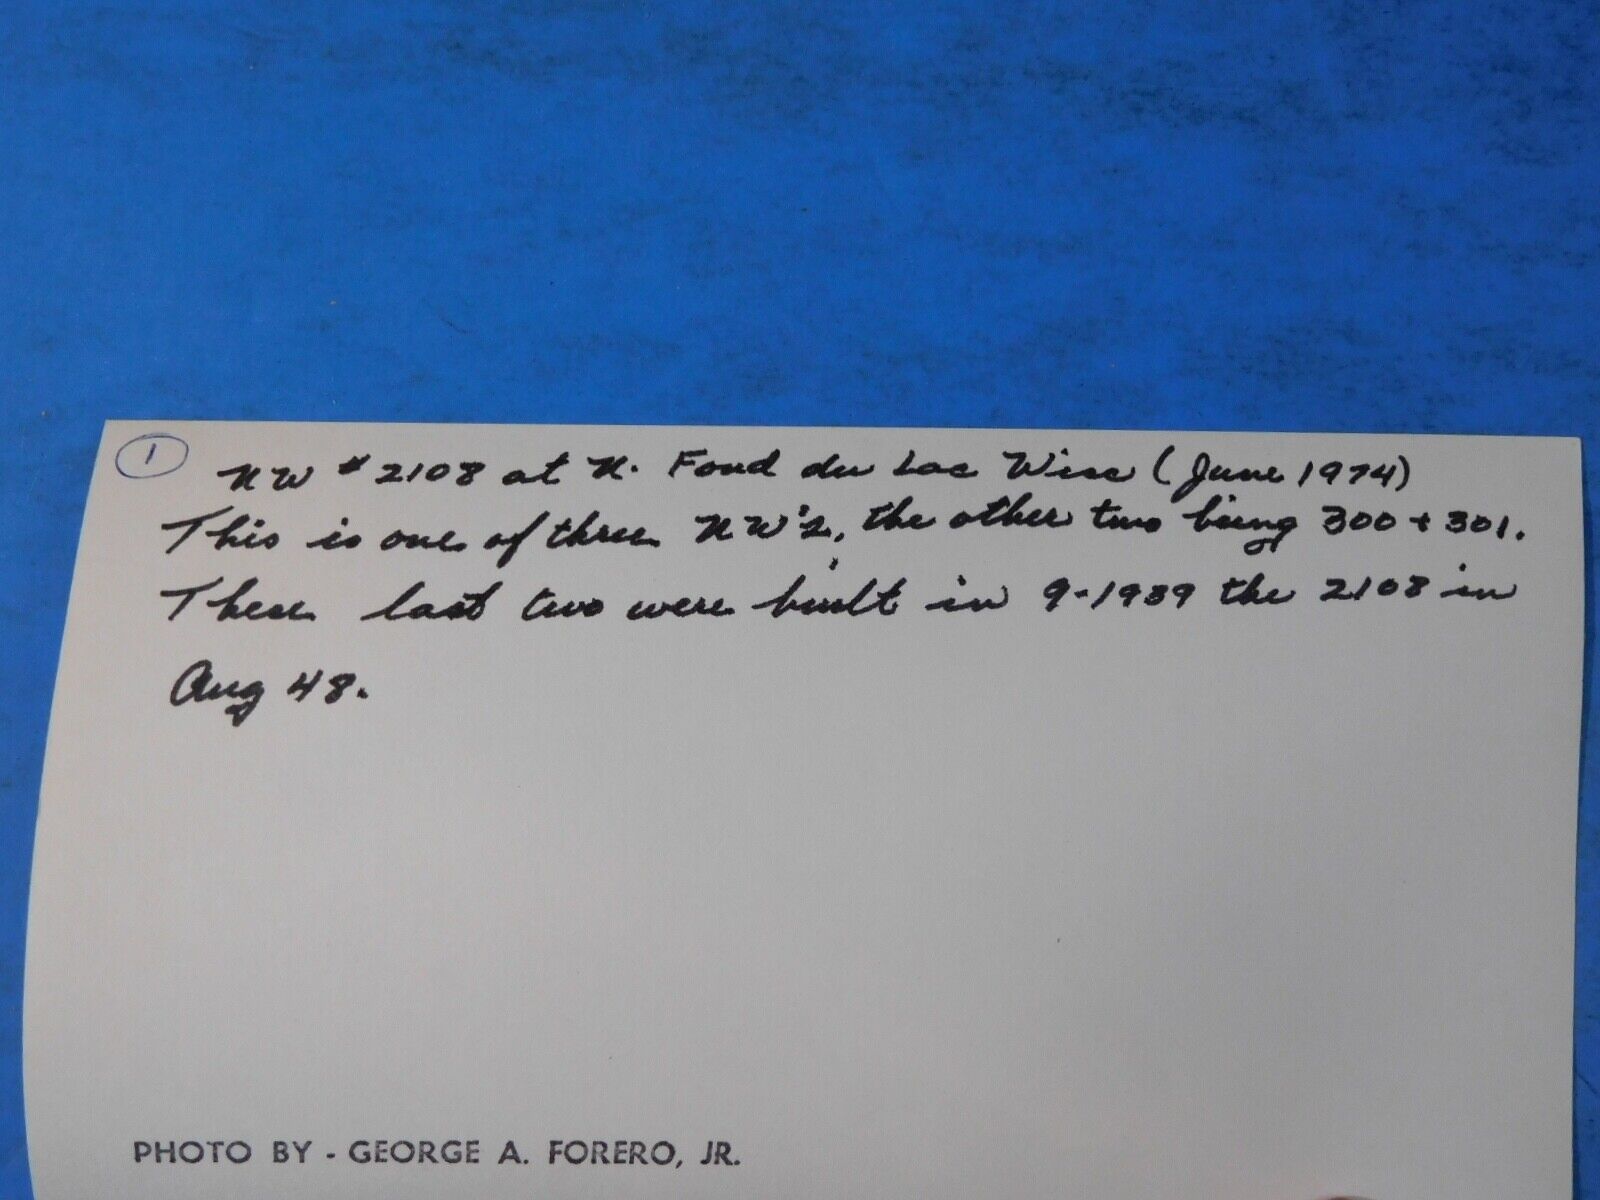 1
NW #2108 at N. Fond du Lac Wisc (June 1974)
This is one of three NW's, the other two being 300 + 301.
These last two were built in 9-1939 the 2108 in
Aug 48.
PHOTO BY - GEORGE A. FORERO, JR.